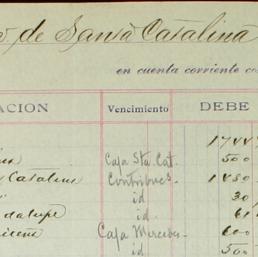 de Santa Catalina
en cuenta corriente co
ACION Vencimiento DEBE
Caja Sta. Cat. 500
Catalina Contribucs. 1480
id 30
id. 61
Caja Merced 600
id 500